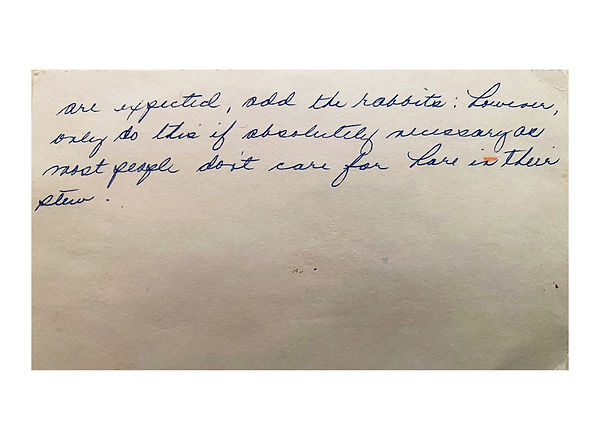 are expected, add the rabbits: however,
only do this if absolutely necessary as
most people don't care for hare in their
stew.